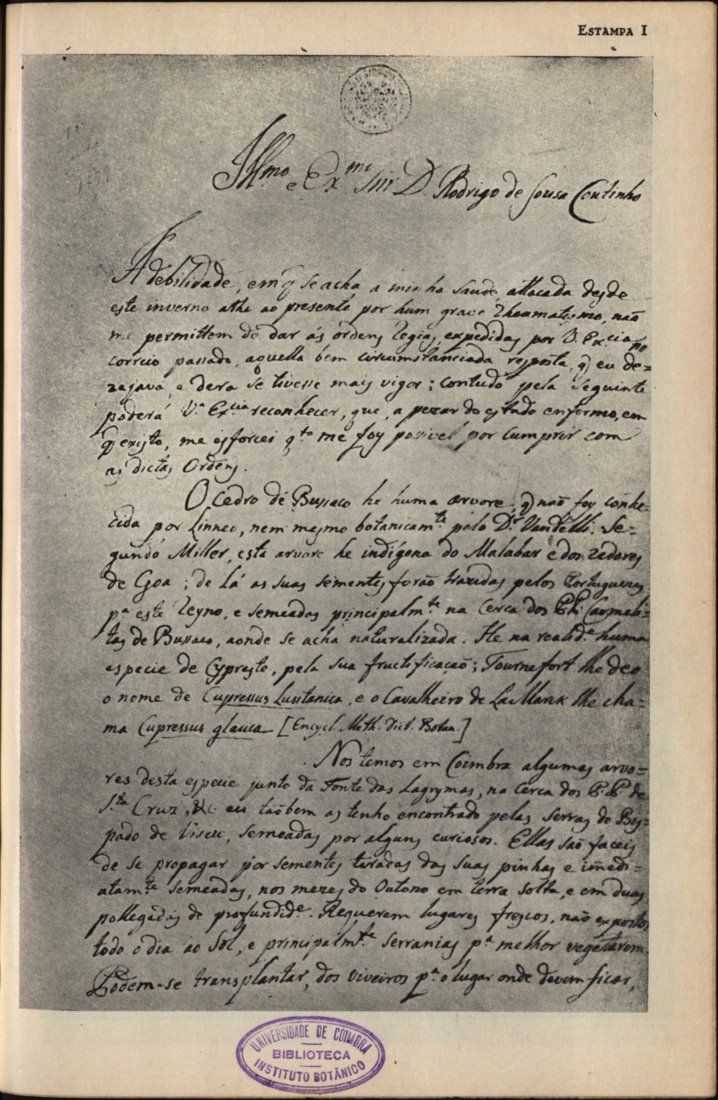 ESTAMPA I
Illmo e Exmo Snr D. Rodrigo de Sousa Coutinho
A debilidade, em q̃ se acha a minha saude, attacada desde
este inverno athe ao presente por hum grave Rheumatismo, não
me permittem de dar ás ordens Regias, expedidas por V. Excia no
correio passado, aquella bem circumstanciada resposta, q̃ eu de=
zejava, e dera se tivesse mais vigor; contudo pela seguinte
poderá V.ª Excia reconhecer, que, a pezar do estado enfermo, em
q̃ existo, me esforcei q.to me foy possivel por cumprir com
as dictas Ordens.
O Cedro de Bussaco he huma arvore, q̃ não foy conhe-
cida por Linneo, nem mesmo botanicam.te pelo D.r Vandelli. Se=
gundo Miller, esta arvore he indigena do Malabar e dos redores
de Goa; de lá as suas sementes forão trazidas pelos Portuguezes
p.ª este Reyno, e semeadas principalm.te na Cerca dos P.P. Carmeli-
tas de Bussaco, aonde se acha naturalizada. He na realid.e huma
especie de Cypreste, pela sua fructificação; Tournefort lhe deo
o nome de Cupressus Lusitanica, e o Cavalheiro de La Mark lhe cha-
ma Cupressus glauca [Encycl. Meth. Dict. Botan.]
Nos temos em Coimbra algumas arvo=
res desta especie junto da Fonte das Lagrymas, na Cerca dos P.P. de
S.ta Cruz, &c eu taõbem as tenho encontrado pelas serras do Bis-
pado de Viseu, semeadas por alguns curiosos. Ellas são faceis
de se propagar por sementes tiradas das suas pinhas e im̃edi-
atam.te semeadas, nos mezes do Outono em terra solta, e em duas
pollegadas de profundid.e. Requerem lugares frescos, não expostos
todo o dia ao Sol, e principalm.te serranias p.ª melhor vegetarem.
Podem-se transplantar, dos viveiros p.ª o lugar onde devem ficar,
UNIVERSIDADE DE COIMBRA
BIBLIOTECA
INSTITUTO BOTÂNICO